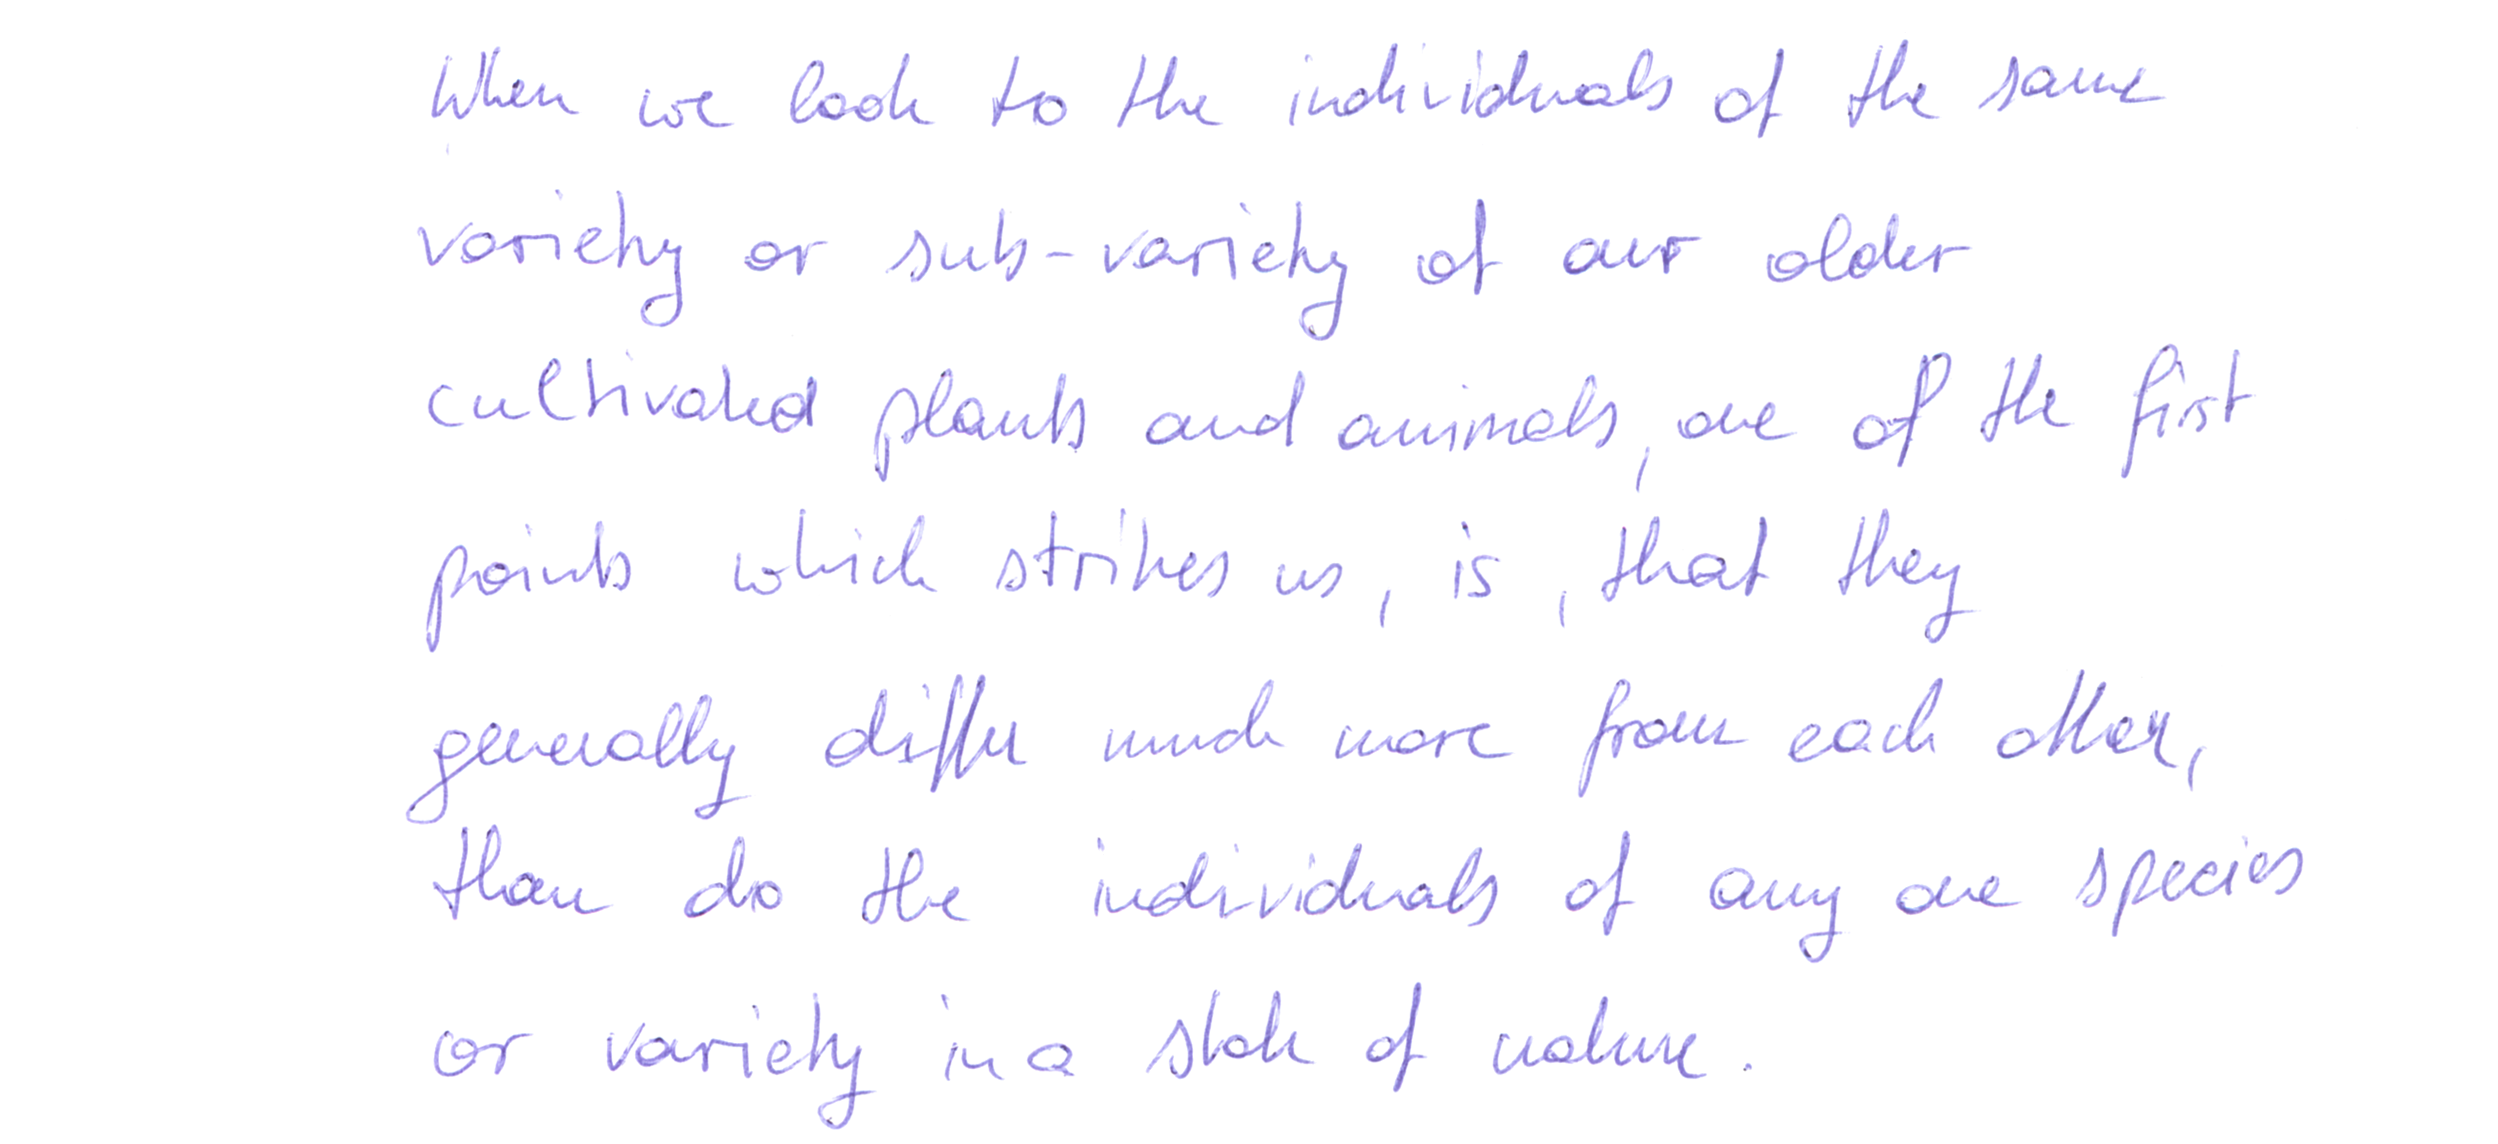 When we look to the individuals of the same
variety or sub-variety of our older
cultivated plants and animals, one of the first
points which strikes us, is, that they
generally differ much more from each other,
than do the individuals of any one species
or variety in a state of nature.